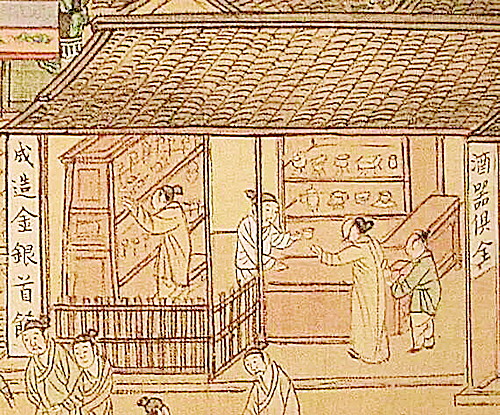 酒器俱全
成造金銀首飾